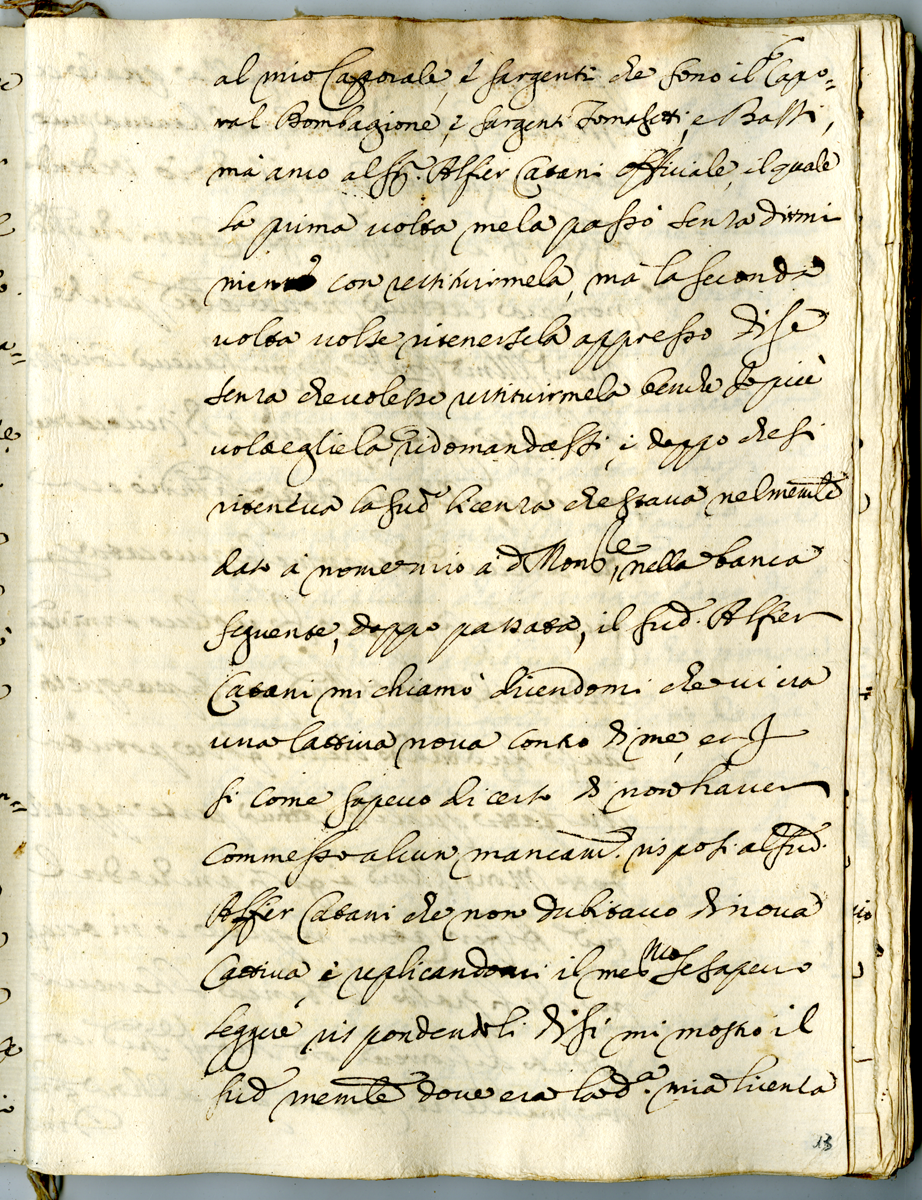 al mio Caporale, è sargenti che sono il Capo=
ral Bombagione, è sargenti Tomasetti, e Bassi,
mà anco al Sr. Alfier Catani officiale, il quale
la prima volta me la passò senza dirmi
niente con restituirmela, mà la seconda
volta volse ritenersela appresso di se
senza che volesse restituirmela benche Io più
volte gliela ridomandassi, è doppo che si
riteneva la sud.a licenza che stava nel mem.le
dato à nome mio à d.o Mons.re, nella banca
seguente, doppo passata, il sud.o Alfier
Catani mi chiamò dicendomi che vi era
una cattiva nova contro di me, et Io
si come sapevo di certo di non haver
commesso alcun mancam.to risposi al sud.o
Alfier Catani che non dubitavo di nova
Cattiva, è replicandomi il med.mo se sapevo
leggere rispondendoli di si mi mostrò il
sud.o mem.le dove era la d.a mia licenza
13